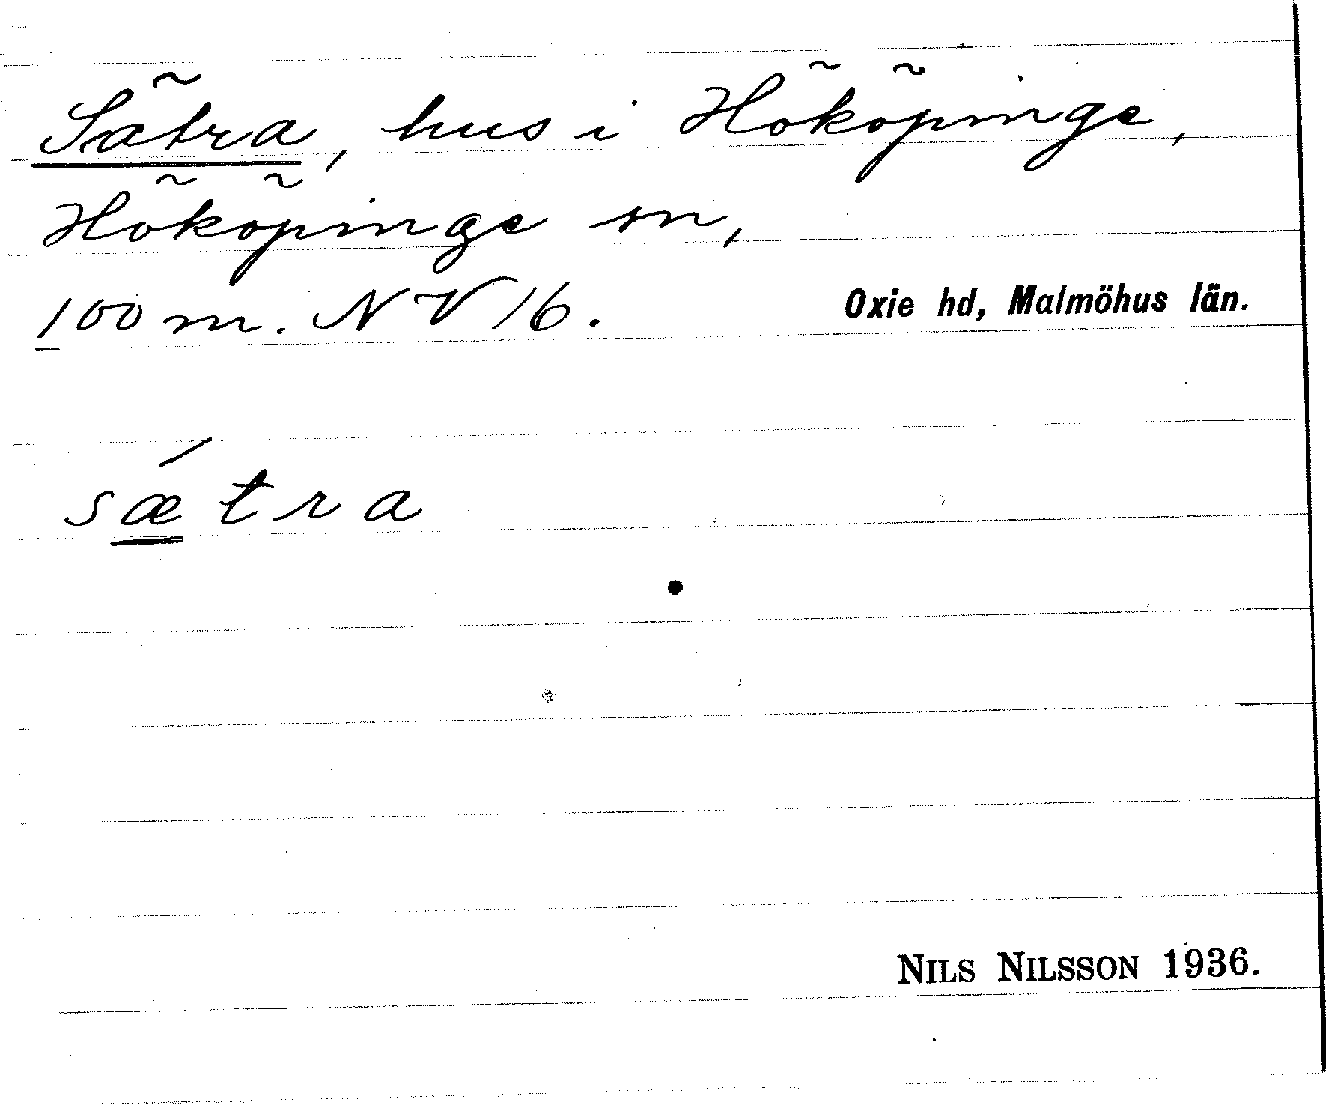 Sätra, hus i Hököpinge,
Hököpinge sn,
100 m. NV 16.
Oxie hd, Malmöhus län.
sǽtra
NILS NILSSON 1936.